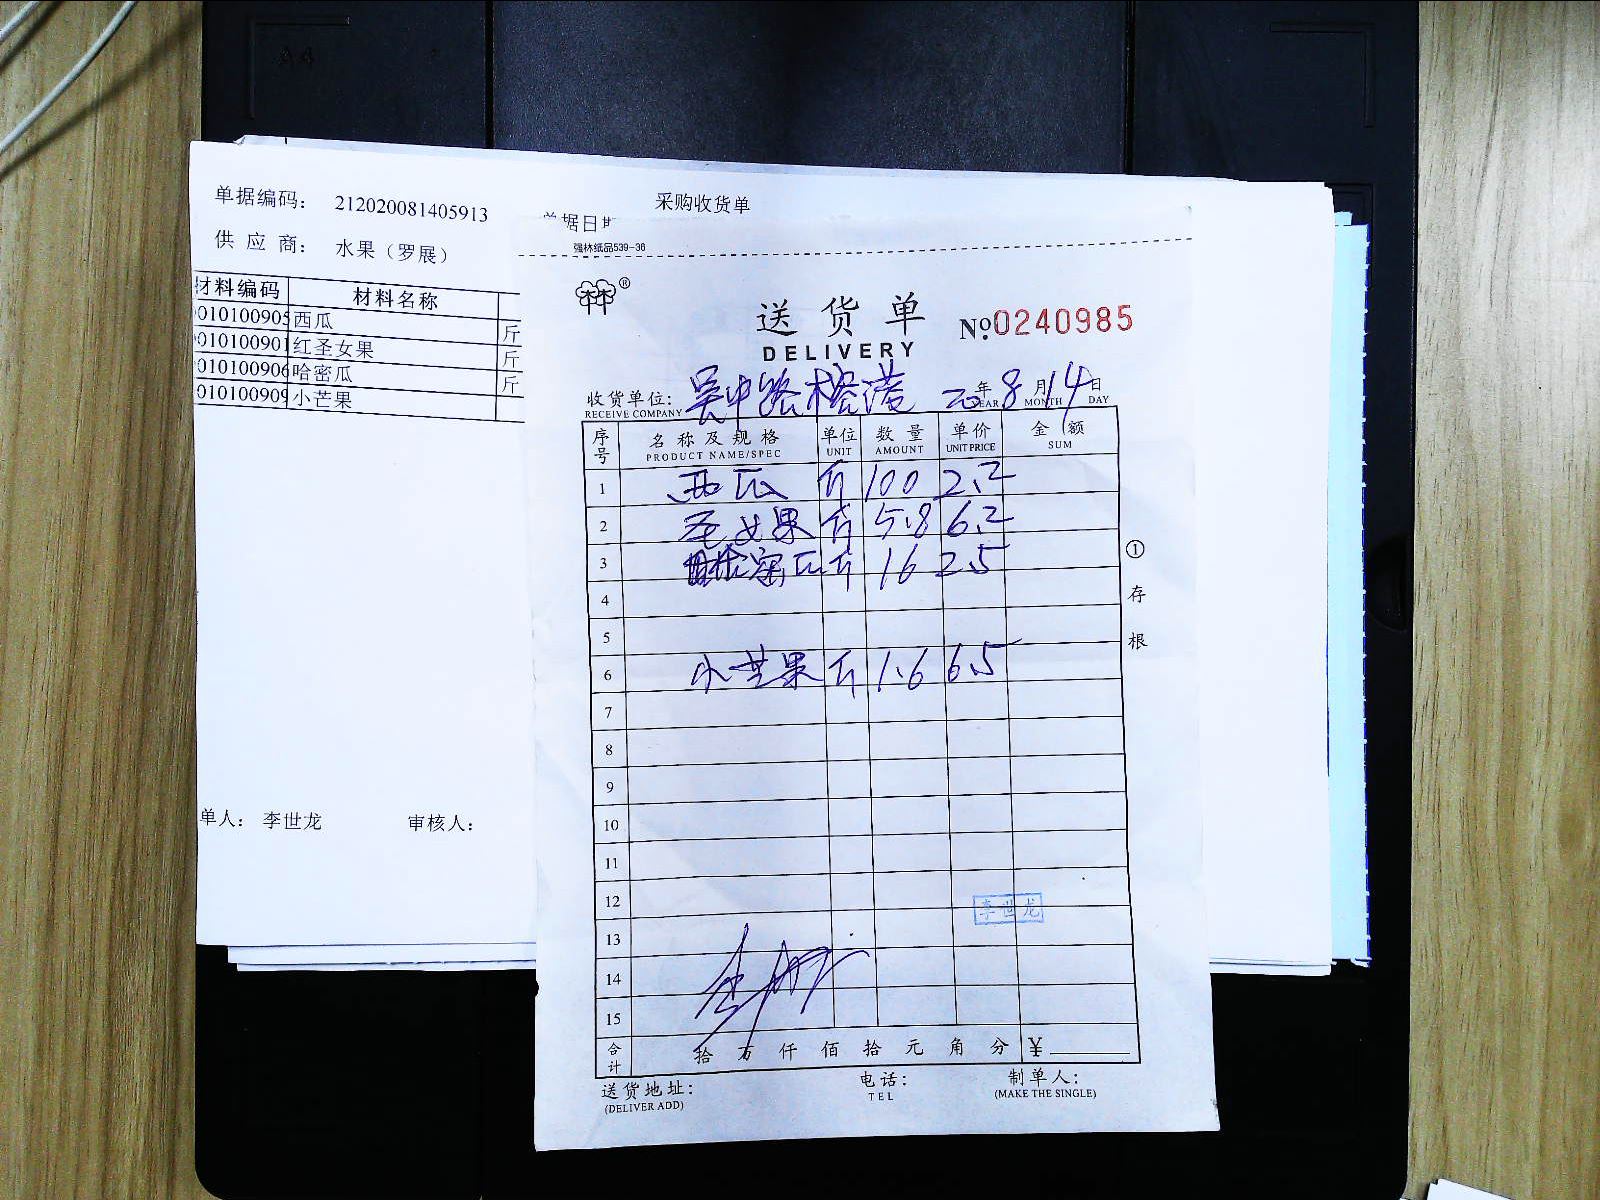 A4
单据编码: 212020081405913
采购收货单
单据日期
供 应 商: 水果（罗展）
材料编码 材料名称
010100905 西瓜 斤
010100901 红圣女果 斤
010100906 哈密瓜 斤
010100909 小芒果
单人: 李世龙 审核人:
强林纸品539-36
®
送货单 №0240985
DELIVERY
收货单位: 吴中路榕港 20年8月14日
RECEIVE COMPANY YEAR MONTH DAY
序号 名称及规格 单位 数量 单价 金额
PRODUCT NAME/SPEC UNIT AMOUNT UNIT PRICE SUM
1 西瓜 斤 100 2.2
2 圣女果 斤 5.8 6.2
3 哈密瓜 斤 16 2.5
4
5
6 小芒果 斤 1.6 6.5
7
8
9
10
11
12
李世龙
13
14
15
合计 拾万仟佰拾元角分 ¥
① 存根
送货地址: 电话: 制单人:
(DELIVER ADD) TEL (MAKE THE SINGLE)